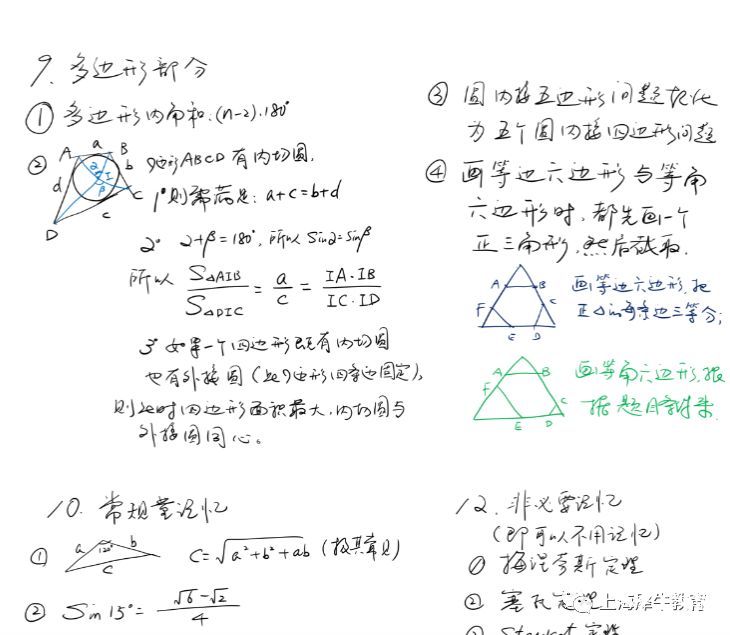 9. 多边形部分
① 多边形内角和:(n-2)·180°
② A a B b C c D d I α β
四边形ABCD 有内切圆,
1° 则需满足: a+c=b+d
2° α+β=180°, 所以 sinα=sinβ
所以 S△AIB/S△DIC = a/c = IA·IB/IC·ID
3° 如果一个四边形既有内切圆
也有外接圆(此四边形四条边固定),
则此时四边形面积最大,内切圆与
外接圆同心。
③ 圆内接五边形问题转化
为五个圆内接四边形问题
④ 画等边六边形与等角
六边形时,都先画一个
正三角形,然后截取.
A B C D E F
画等边六边形,把
正△的每条边三等分;
A B C D E F
画等角六边形,根
据题目
10. 常规量记忆
① a 120° b c C=√a²+b²+ab (极其常见)
② Sin 15°= √6-√2/4
12. 非必要记忆
(即可以不用记忆)
① 梅涅劳斯定理
② 塞瓦定理
上海犀牛教育
③ Stewart 定理